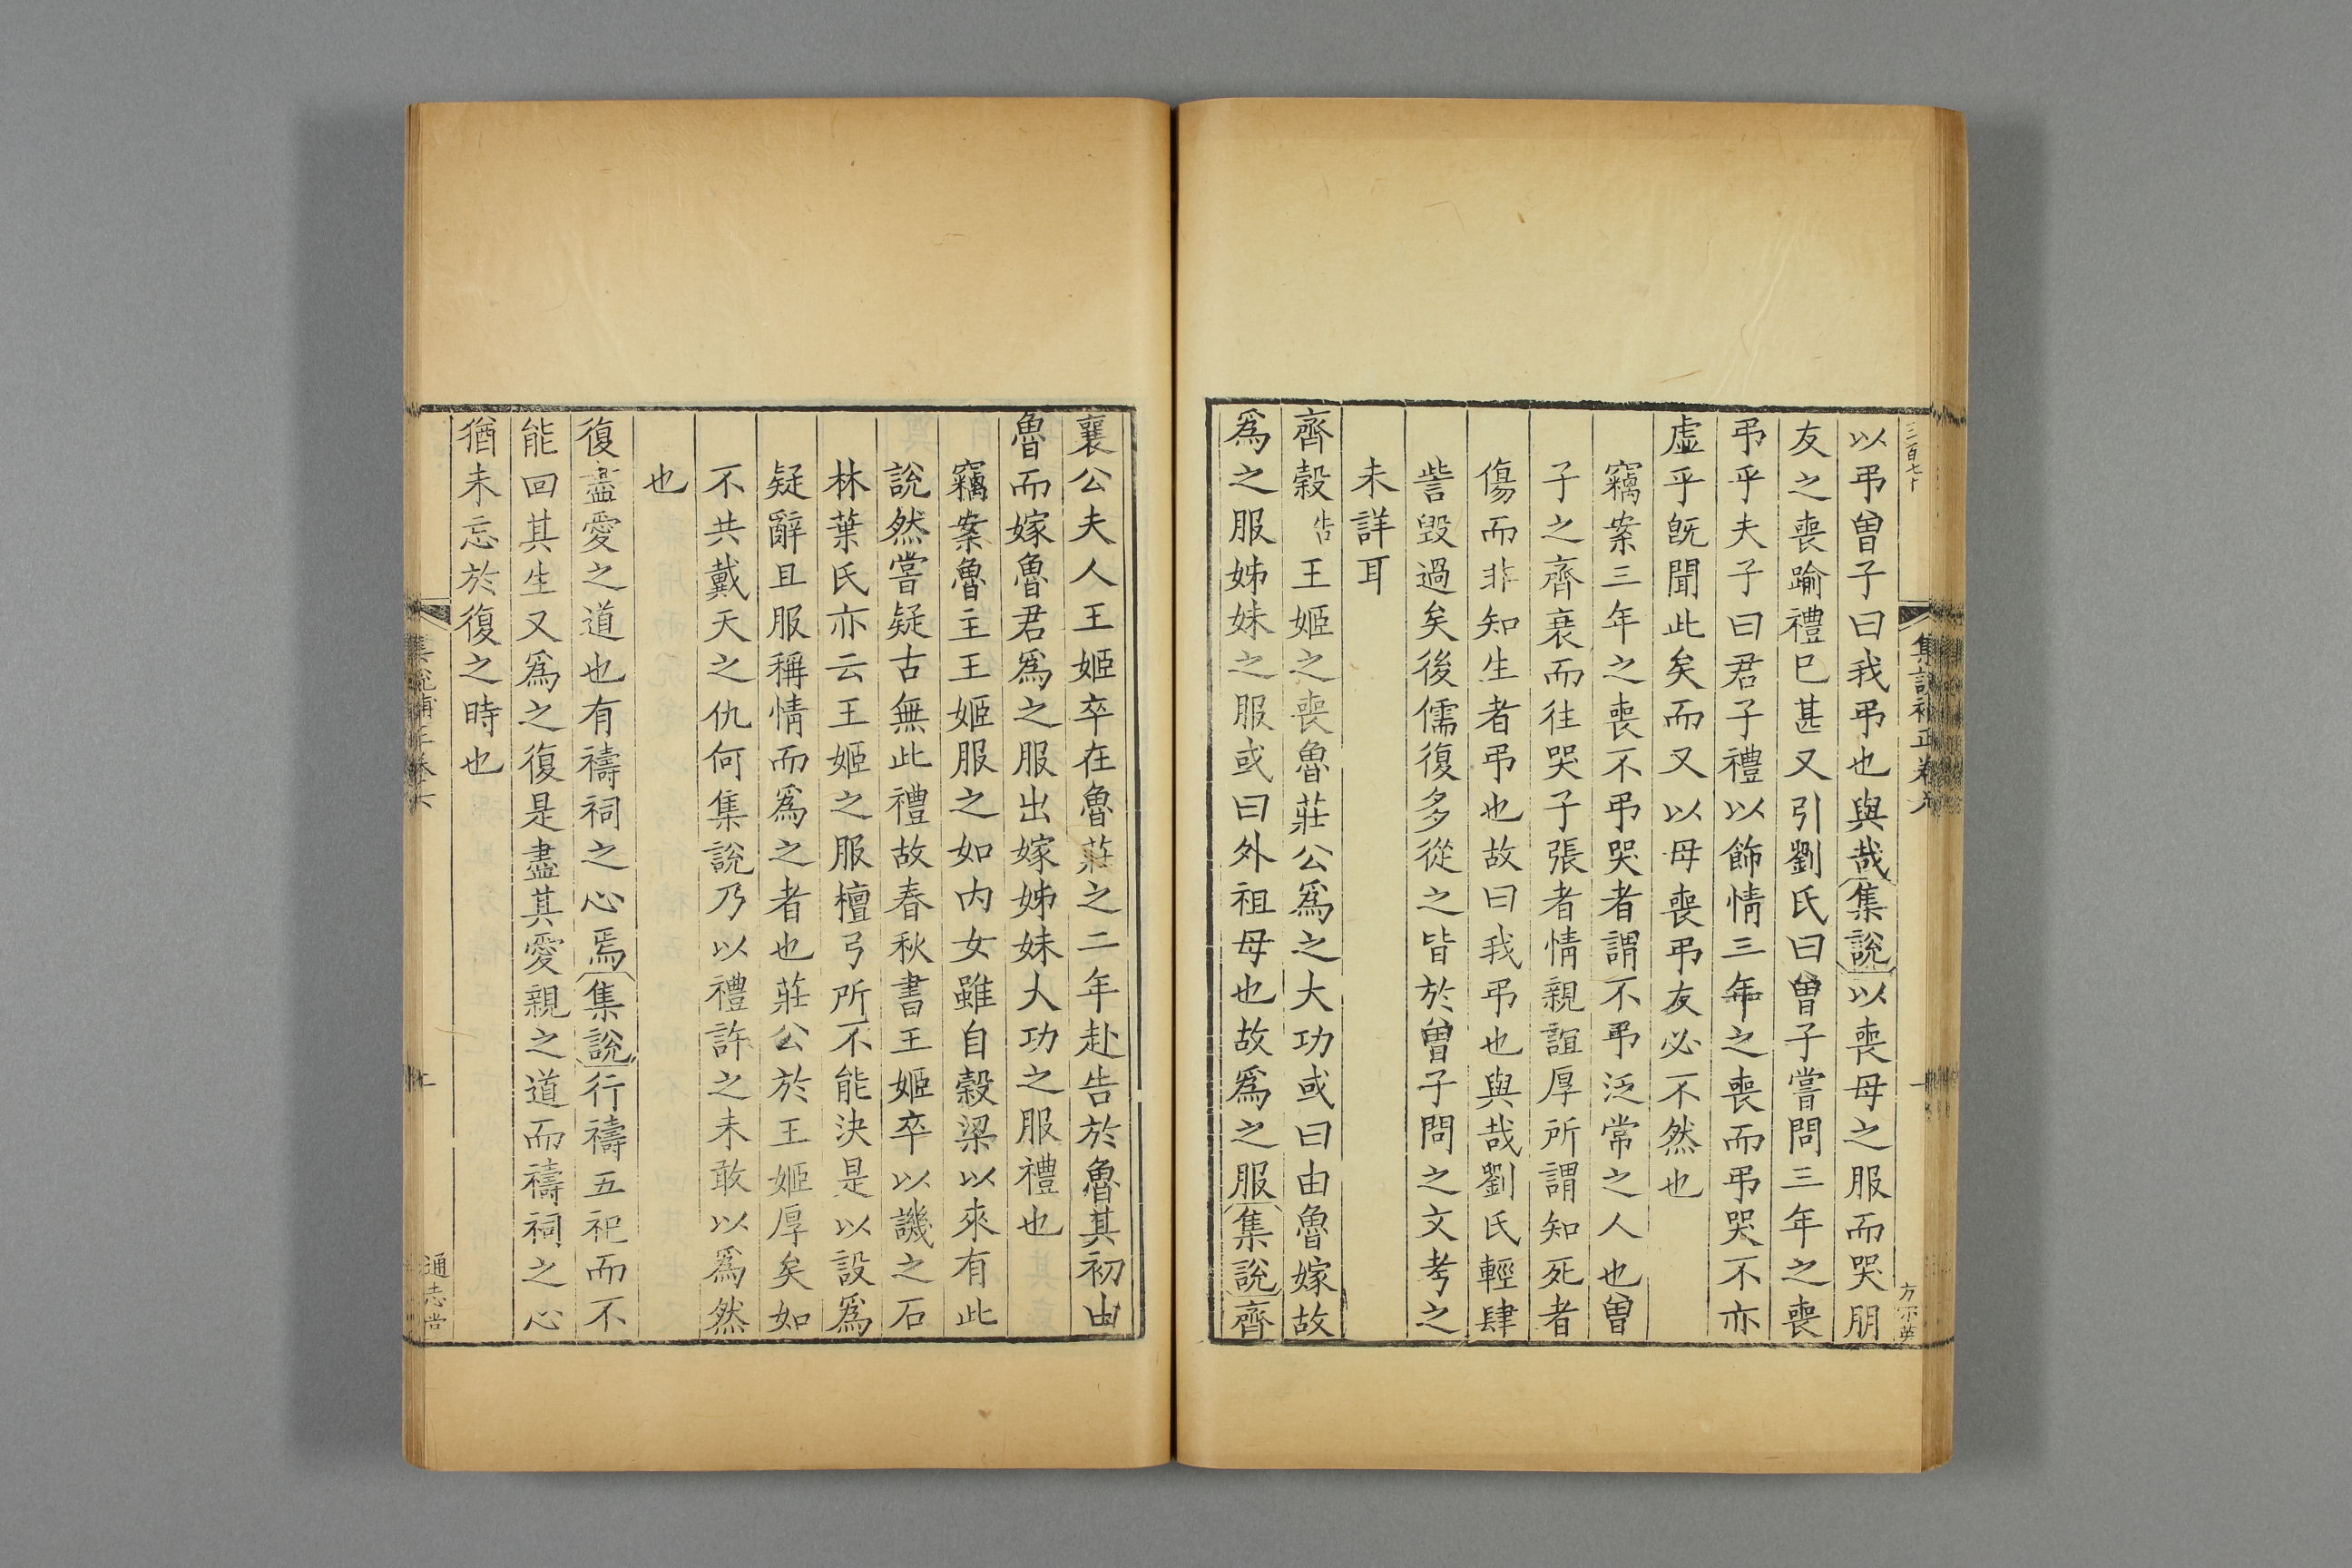 三百七十
集說補正卷六
方宗英
以弔曾子曰我弔也與哉集說以喪母之服而哭朋
友之喪踰禮已甚又引劉氏曰曾子嘗問三年之喪
弔乎夫子曰君子禮以飾情三年之喪而弔哭不亦
虛乎旣聞此矣而又以母喪弔友必不然也
竊案三年之喪不弔哭者謂不弔泛常之人也曾
子之齊衰而往哭子張者情親誼厚所謂知死者
傷而非知生者弔也故曰我弔也與哉劉氏輕肆
訾毀過矣後儒復多從之皆於曾子問之文考之
未詳耳
齊穀告王姬之喪魯莊公爲之大功或曰由魯嫁故
爲之服姊妹之服或曰外祖母也故爲之服集說齊
襄公夫人王姬卒在魯莊之二年赴告於魯其初由
魯而嫁魯君爲之服出嫁姊妹大功之服禮也
竊案魯主王姬服之如內女雖自穀梁以來有此
說然嘗疑古無此禮故春秋書王姬卒以譏之石
林葉氏亦云王姬之服檀弓所不能決是以設爲
疑辭且服稱情而爲之者也莊公於王姬厚矣如
不共戴天之仇何集說乃以禮許之未敢以爲然
也
復盡愛之道也有禱祠之心焉集說行禱五祀而不
能回其生又爲之復是盡其愛親之道而禱祠之心
猶未忘於復之時也
集說補正卷六
通志堂